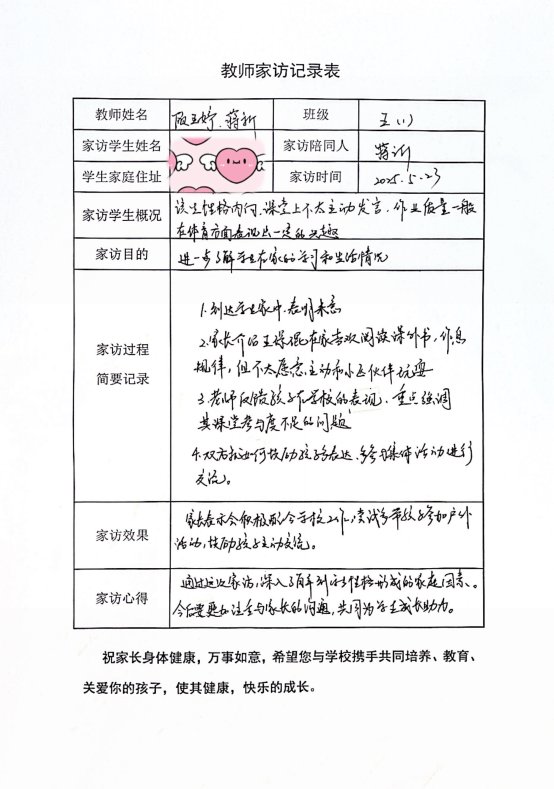 教师家访记录表
教师姓名 班级 五(1)
家访学生姓名 家访陪同人 蒋昕
学生家庭住址 家访时间 2025.5.23
家访学生概况 该生性格内向、课堂上不太主动发言、作业质量一般
在体育方面表现出一定的兴趣
家访目的 进一步了解学生在家的学习和生活情况
家访过程
简要记录
1.到达学生家中、表明来意
2.家长介绍在家喜欢阅读课外书，作息
规律，但不太愿意主动和小区伙伴玩耍
3.老师反馈孩子在学校的表现、重点强调
其课堂参与度不足的问题
4.双方就如何鼓励孩子多表达、多参与集体活动进行
交流。
家访效果 家长表示会积极配合学校工作，尝试多带孩子参加户外
活动，鼓励孩子主动交流。
家访心得 通过这次家访，深入了解到学生性格形成的家庭因素、
今后要更加注重与家长的沟通，共同为学生成长助力。
祝家长身体健康，万事如意，希望您与学校携手共同培养、教育、
关爱你的孩子，使其健康，快乐的成长。